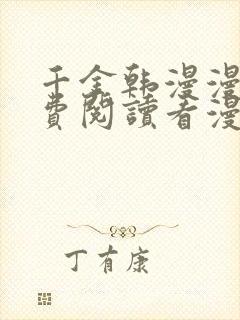 千金韩漫漫
费阅读看漫
丁有康